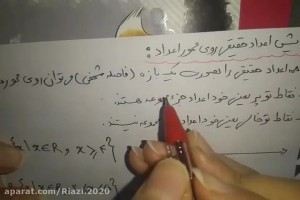 یش اعداد حقیقی روی محور اعداد:
اعداد حقیقی را بصورت یک بازه (فاصله مشخص) می‌توان روی محور
نقاط توپر یعنی خود اعداد جزء مجموعه هستند.
نقاط توخالی یعنی خود اعداد مجموعه نیستند.
x | x ∈ R , x ≥ ۴}
x | x ∈ R , x
aparat.com/Riazi.2020